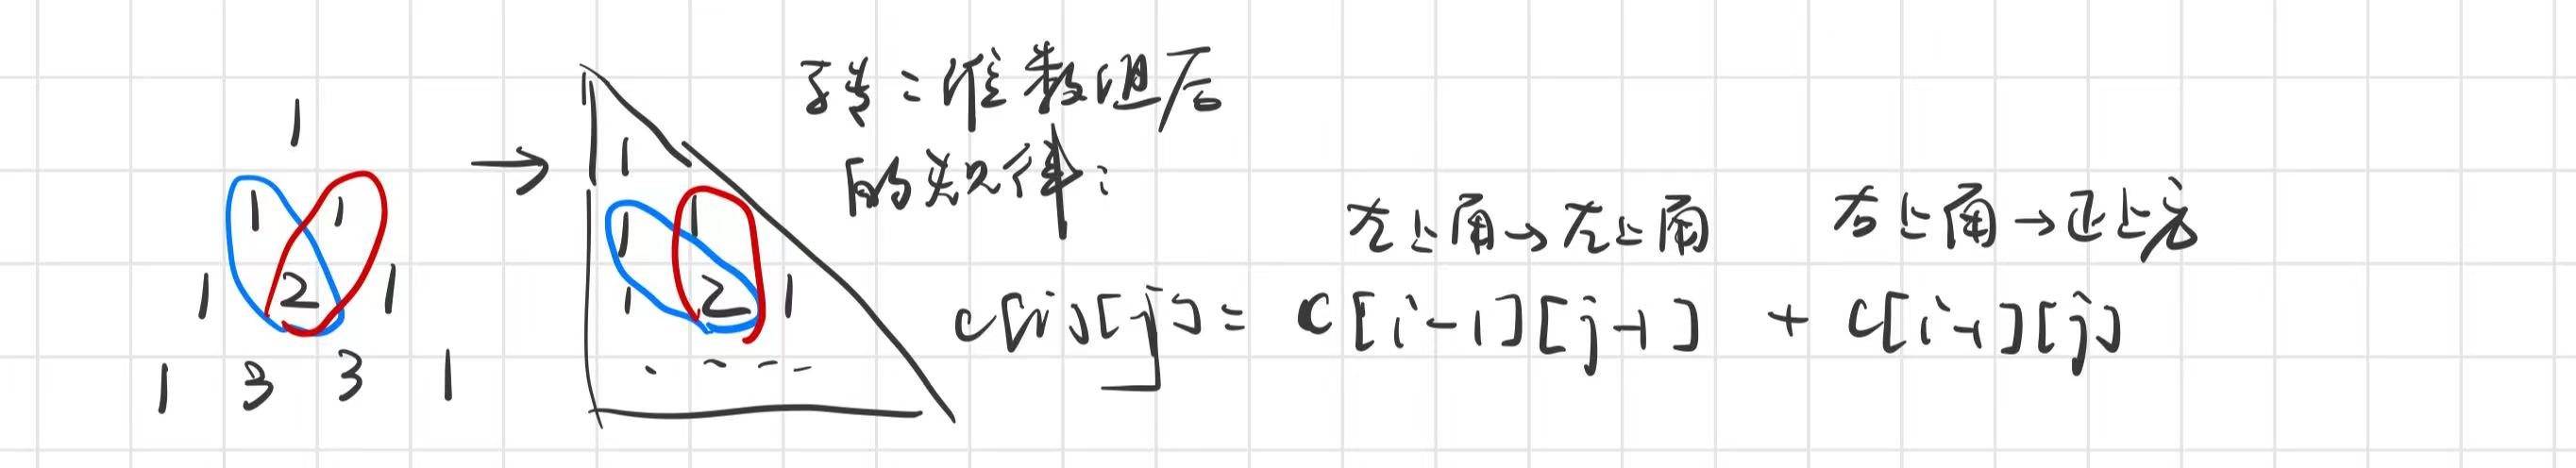 1
1 1
1 2 1
1 3 3 1
→
1
1 1
1 2 1
. ~ - -
转二维数组后
的规律:
左上角→左上角 右上角→正上方
c[i][j] = c[i-1][j-1] + c[i-1][j]